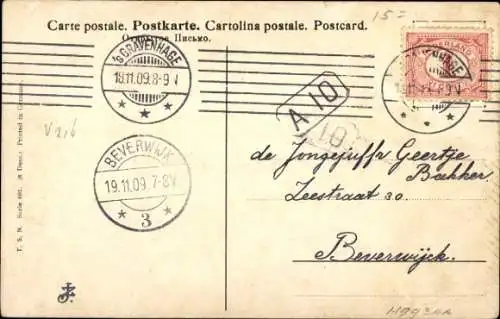 Carte postale. Postkarte. Cartolina postale. Postcard.
Открытое Письмо.
15=
'S GRAVENHAGE
18.11.09.8-9 V
A 10
V 216
BEVERWIJK
19.11.09.7-8V
3
de Jongejuffr Geertje
Bakker
Zeestraat 30.
Beverwijck.
T. S. N. Serie 691.
Printed in Germany.